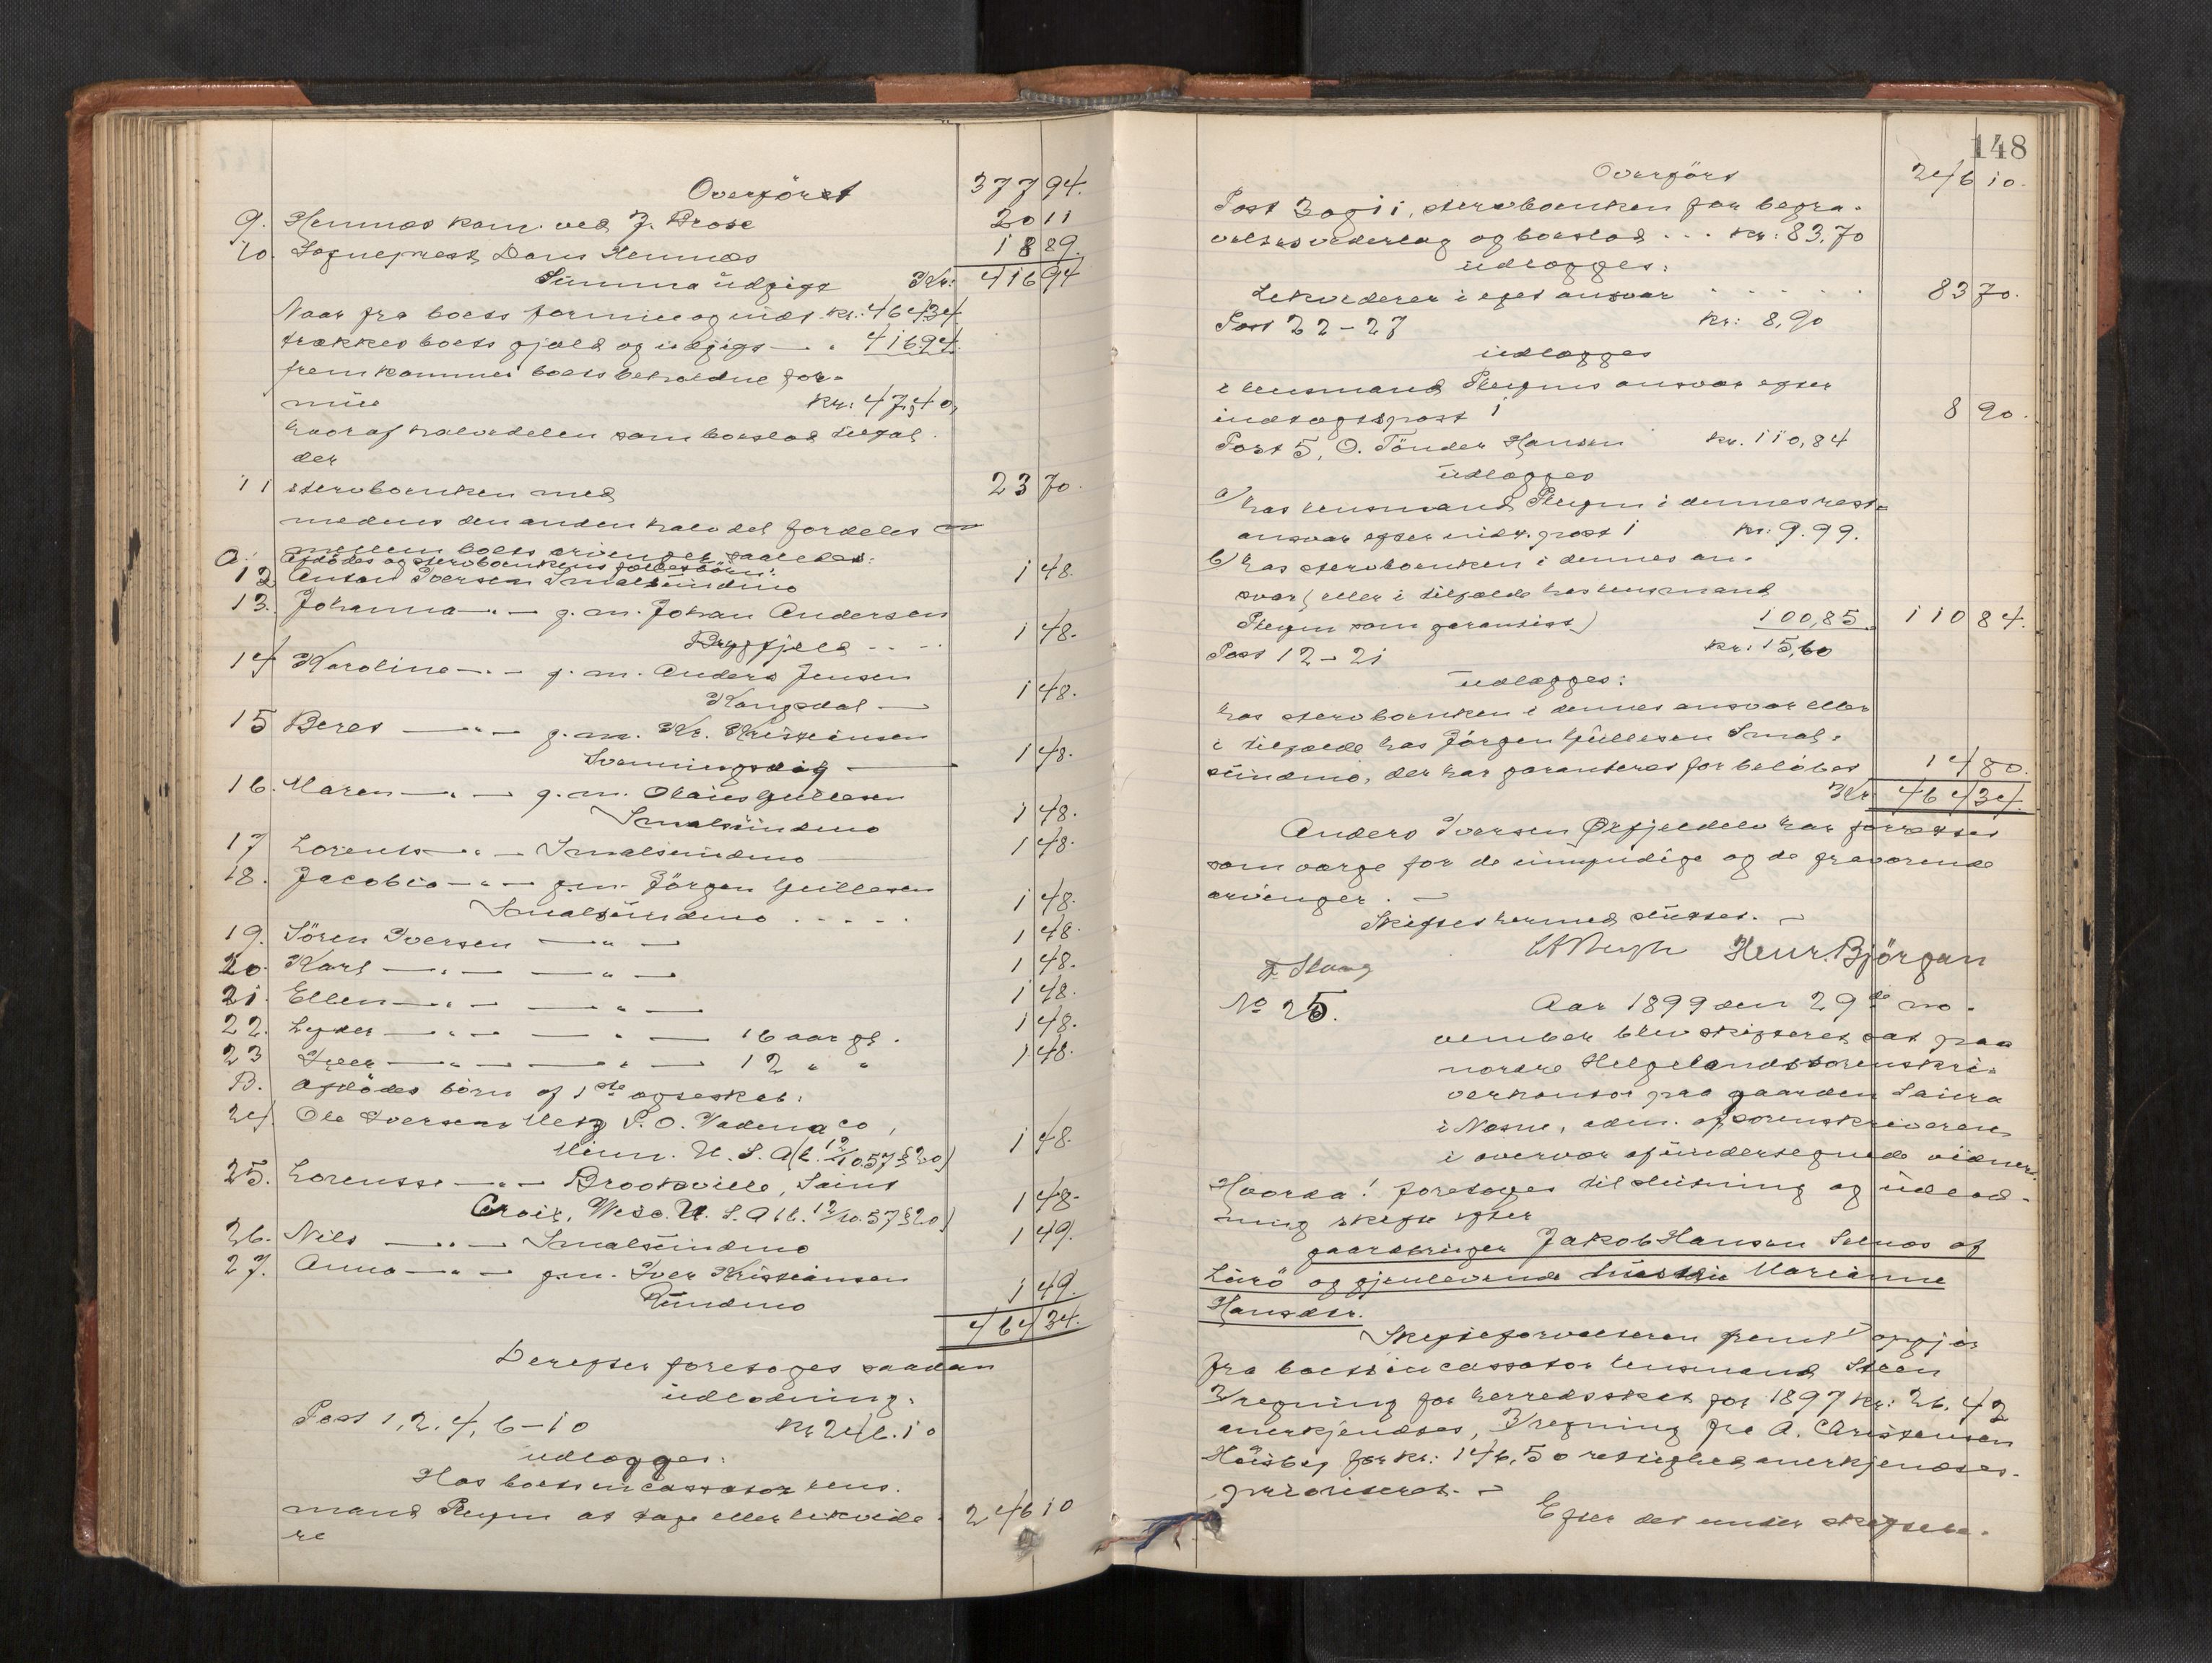 Overført 377 94.
9. Hemnæs kom. ved J. Brose 20 11
10. Sogneprest Daus Hemnæs 18 89.
Summa udgift Kr: 416 94
Naar fra boets formue og indt. kr.: 464,34
trækkes boets gjæld og udgift — " 416.94.
fremkommer boets beholdne for-
mue kr: 47,40,
hvoraf halvdelen som boeslod tilfal-
der
11 sterboenken med 23 70.
medens den anden halvdel fordeles
mellem boets arvinger saaledes:
A. Afdødes og sterboenkens fællesbørn:
12 Anton Iversen Smalsundmo 1 48.
13. Johanna —"— g. m. Johan Andersen
Bryggfjeld - - - 1 48.
14 Karoline —"— g. m. Anders Jensen
Kangsdal — 1 48.
15 Beret —"— g. m. Kr. Kristiansen
Svenningsdag — 1 48.
16. Maren —"— g. m. Olaius Gullesen
Smalsundmo 1 48.
17 Lorents —"— Smalsundmo 1 48.
18. Jacobia —"— g. m. Jørgen Gullesen
Smalsundmo . - - - . 1 48.
19. Søren Iversen —"— 1 48.
20. Karl —"— —"— 1 48.
21. Ellen —"— —"— 1 48.
22. Lyder —"— —"— 16 aar gl. 1 48.
23 Iver —"— —"— 12 " " 1 48.
B. Afdødes børn af 1ste ægteskab:
24 Ole Iversen Metz P. O. Vadena co,
Minn. U. S. A (l. 12/10.57 § 20) 1 48.
25. Lorentse —"— Brookville, Saint
Croix, Wisc. U. S. A (l. 12/10.57 § 20) 1 48-
26. Nils —"— Smalsundmo 1 49.
27. Anna —"— g. m. Iver Kristiansen
Rundmo 1 49.
464 34.
Derefter foretoges saadan
udlodning:
Post 1, 2, 4, 6-10 Kr 246.10
udlægges:
Hos boets incassator lens-
mand Pleym at tage eller likvide-
re 246 10
148
Overført 246 10.
Post 3 og 11, sterboenken for begra-
velsesvederlag og boeslod - - - Kr: 83,70
udlægges:
Likviderer i eget ansvar - - - - . 83 70.
Post 22-27 Kr: 8,90
udlægges
i lensmand Pleyms ansvar efter
indtægtspost 1 8 90.
Post 5, O. Tønder Hansen Kr. 110,84
udlægges
a) hos lensmand Pleym i dennes rest-
ansvar efter indt. post 1 kr. 9.99.
b) hos sterboenken i dennes an-
svar (eller i tilfælde hos lensmand
Pleym som garantist) 100,85. 110 84.
Post 12-21 Kr: 15,60
udlægges:
hos sterboenken i dennes ansvar eller
i tilfælde hos Jørgen Gullesen Smal-
sundmo, der har garanteret for beløbet 14 80.
Kr 464 34.
Anders Iversen Ørfjeldelv har fremmøtt
som værge for de umyndige og de fraværende
arvinger. —
Skiftet hermed sluttet. —
Henr. Bjørgan
No 25. Aar 1899 den 29de no-
vember blev skifteret sat paa
nordre Helgelands sorenskri-
verkontor paa gaarden Saura
i Næsne, adm. af sorenskriveren
i overvær af undertegnede vidner.
Hvorda! foretoges til slutning og udlod-
ning skiftet efter
gaardbruger Jakob Hansen Selnæs af
Lurø og gjenlevende hustru Marianne
Hansdtr.
Skifteforvalteren fremla 1) opgjør
fra boets incassator lensmand Steen
2) regning for herredsskat for 1897 Kr: 26,42
anerkjendtes, 3) regning fra A. Christensen
Husby for kr: 146,50 rettighed anerkjendtes.
prioriteret. —
Efter det under skiftebe-